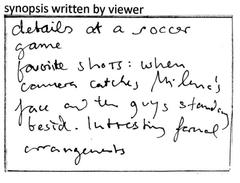 synopsis written by viewer
details at a soccer
game
favorite shots: when
camera catches Milene's
face and the guys standing
besid. Intresting formal
arrangements